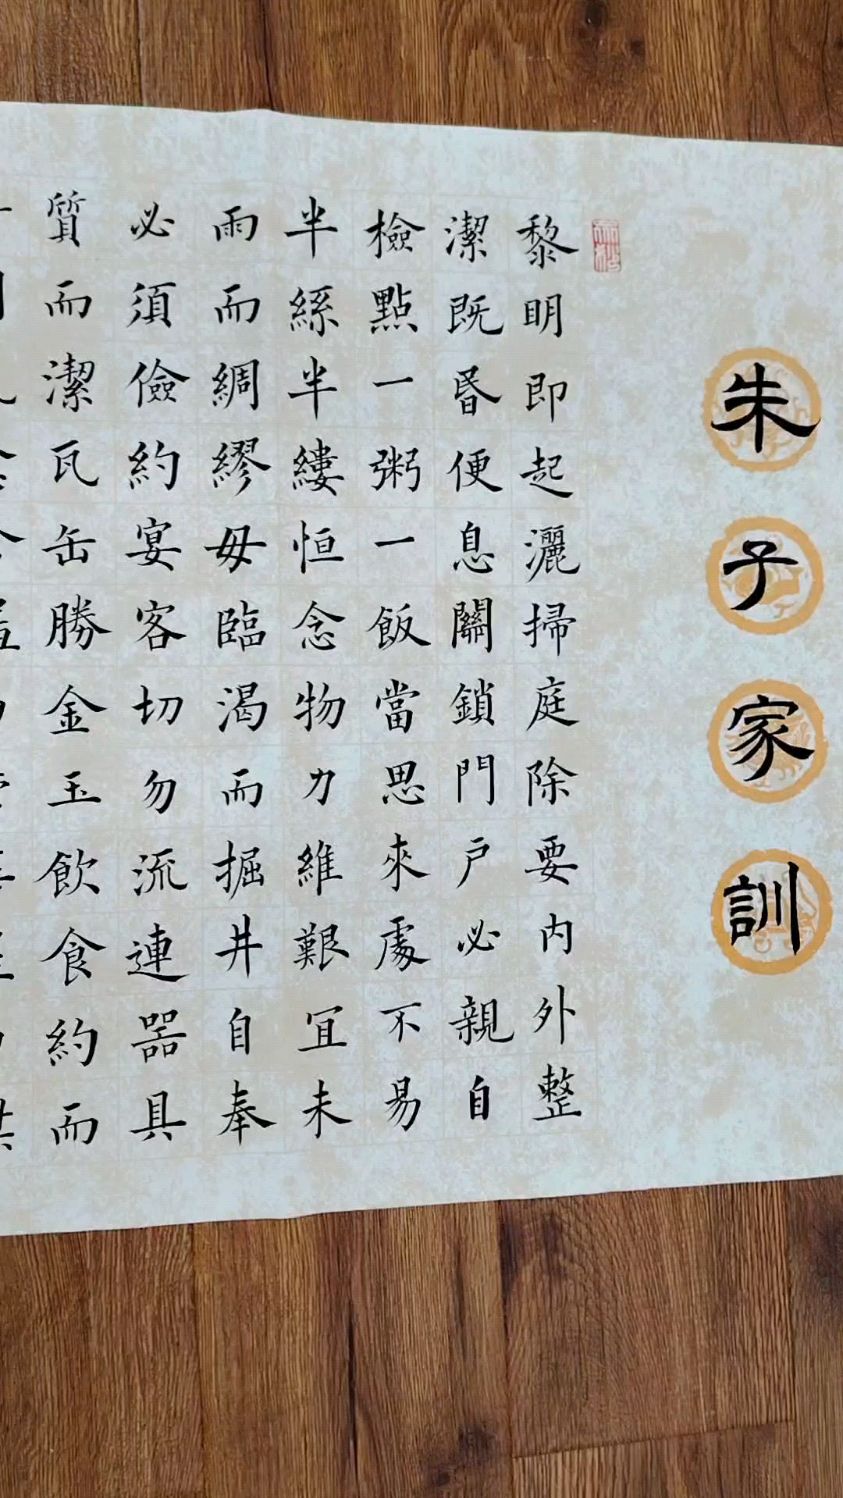 朱子家訓
黎明即起灑掃庭除要内外整
潔既昏便息關鎖門户必親自
檢點一粥一飯當思來處不易
半絲半縷恒念物力維艱宜未
雨而綢繆毋臨渴而掘井自奉
必須儉約宴客切勿流連器具
質而潔瓦缶勝金玉飲食約而